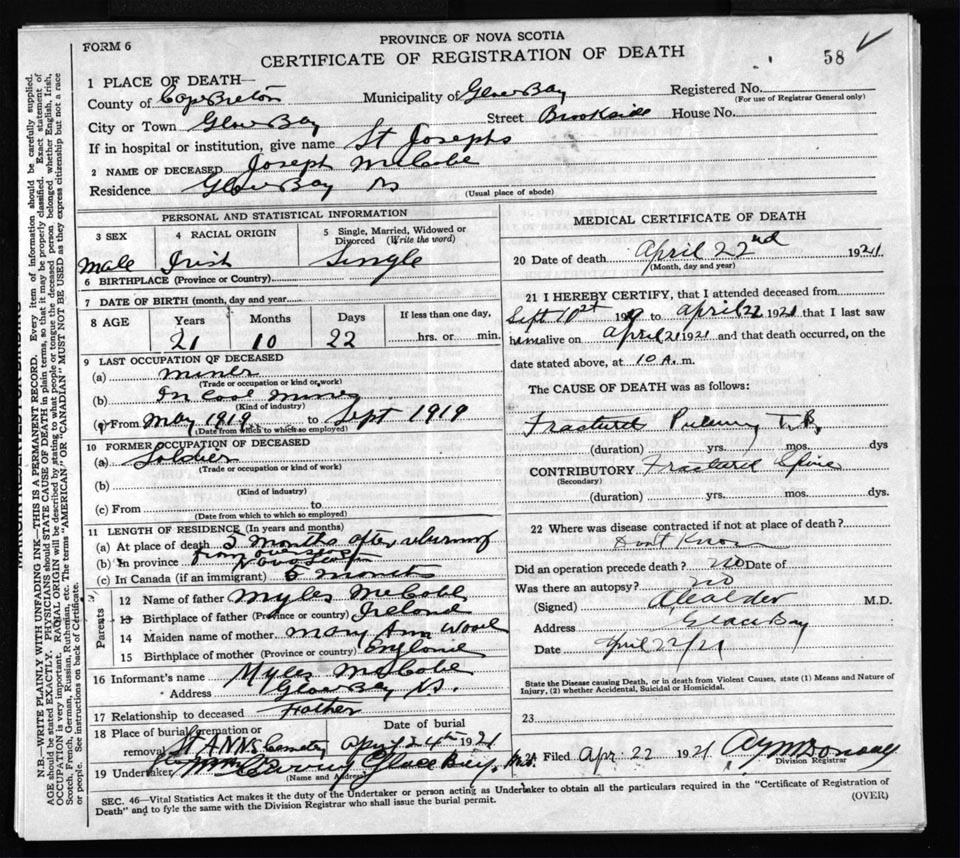 PROVINCE OF NOVA SCOTIA
FORM 6
CERTIFICATE OF REGISTRATION OF DEATH
58
1 PLACE OF DEATH—
County of Cape Breton Municipality of Glace Bay Registered No.
(For use of Registrar General only)
City or Town Glace Bay Street Brookside House No.
If in hospital or institution, give name St Josephs
2 NAME OF DECEASED Joseph McCabe
Residence Glace Bay NS
(Usual place of abode)
PERSONAL AND STATISTICAL INFORMATION
3 SEX 4 RACIAL ORIGIN 5 Single, Married, Widowed or Divorced (Write the word)
Male Irish Single
6 BIRTHPLACE (Province or Country)
7 DATE OF BIRTH (month, day and year)
8 AGE Years Months Days If less than one day,
21 10 22 hrs. or min.
9 LAST OCCUPATION OF DECEASED
(a) Miner
(Trade or occupation or kind of work)
(b) In Coal Mines
(Kind of industry)
(c) From May 1919 to Sept 1919
(Date from which to which so employed)
10 FORMER OCCUPATION OF DECEASED
(a) Soldier
(Trade or occupation or kind of work)
(b)
(Kind of industry)
(c) From to
(Date from which to which so employed)
11 LENGTH OF RESIDENCE (In years and months)
(a) At place of death 5 months after returning
from overseas
(b) In province Nova Scotia
(c) In Canada (if an immigrant) 5 months
Parents
12 Name of father Myles McCabe
13 Birthplace of father (Province or country) Ireland
14 Maiden name of mother Mary Ann Wood
15 Birthplace of mother (Province or country) England
16 Informant's name Myles McCabe
Address Glace Bay NS.
17 Relationship to deceased Father
18 Place of burial, cremation or Date of burial
removal St ANNS Cemetery April 24th 1921
19 Undertaker Glace Bay. N.S.
(Name and Address)
MEDICAL CERTIFICATE OF DEATH
20 Date of death April 22nd 1921
(Month, day and year)
21 I HEREBY CERTIFY, that I attended deceased from
Sept 10th 1919 to April 22 1921 that I last saw
him alive on April 21 1921 and that death occurred, on the
date stated above, at 10 A. m.
The CAUSE OF DEATH was as follows:
Fractured T.B.
(duration) yrs. mos. dys
CONTRIBUTORY Fractured Spine
(Secondary)
(duration) yrs. mos. dys.
22 Where was disease contracted if not at place of death?
Dont Know
Did an operation precede death? no Date of
Was there an autopsy? no
(Signed) M.D.
Address Glace Bay
Date April 22/21
State the Disease causing Death, or in death from Violent Causes, state (1) Means and Nature of
Injury, (2) whether Accidental, Suicidal or Homicidal.
23
24 Filed Apr 22 1921
Division Registrar
SEC. 46—Vital Statistics Act makes it the duty of the Undertaker or person acting as Undertaker to obtain all the particulars required in the "Certificate of Registration of
Death" and to fyle the same with the Division Registrar who shall issue the burial permit. (OVER)
N.B.—WRITE PLAINLY WITH UNFADING INK—THIS IS A PERMANENT RECORD. Every item of information should be carefully supplied.
AGE should be stated EXACTLY. PHYSICIANS should STATE CAUSE OF DEATH in plain terms, so that it may be properly classified. Exact statement of
OCCUPATION is very important. RACIAL ORIGIN will be described by stating to what people or tongue the deceased person belonged whether English, Irish,
Scotch, French, German, Russian, Ruthenian, etc. The terms "AMERICAN" OR "CANADIAN" MUST NOT BE USED as they express citizenship but not a race
or people. See instructions on back of Certificate.